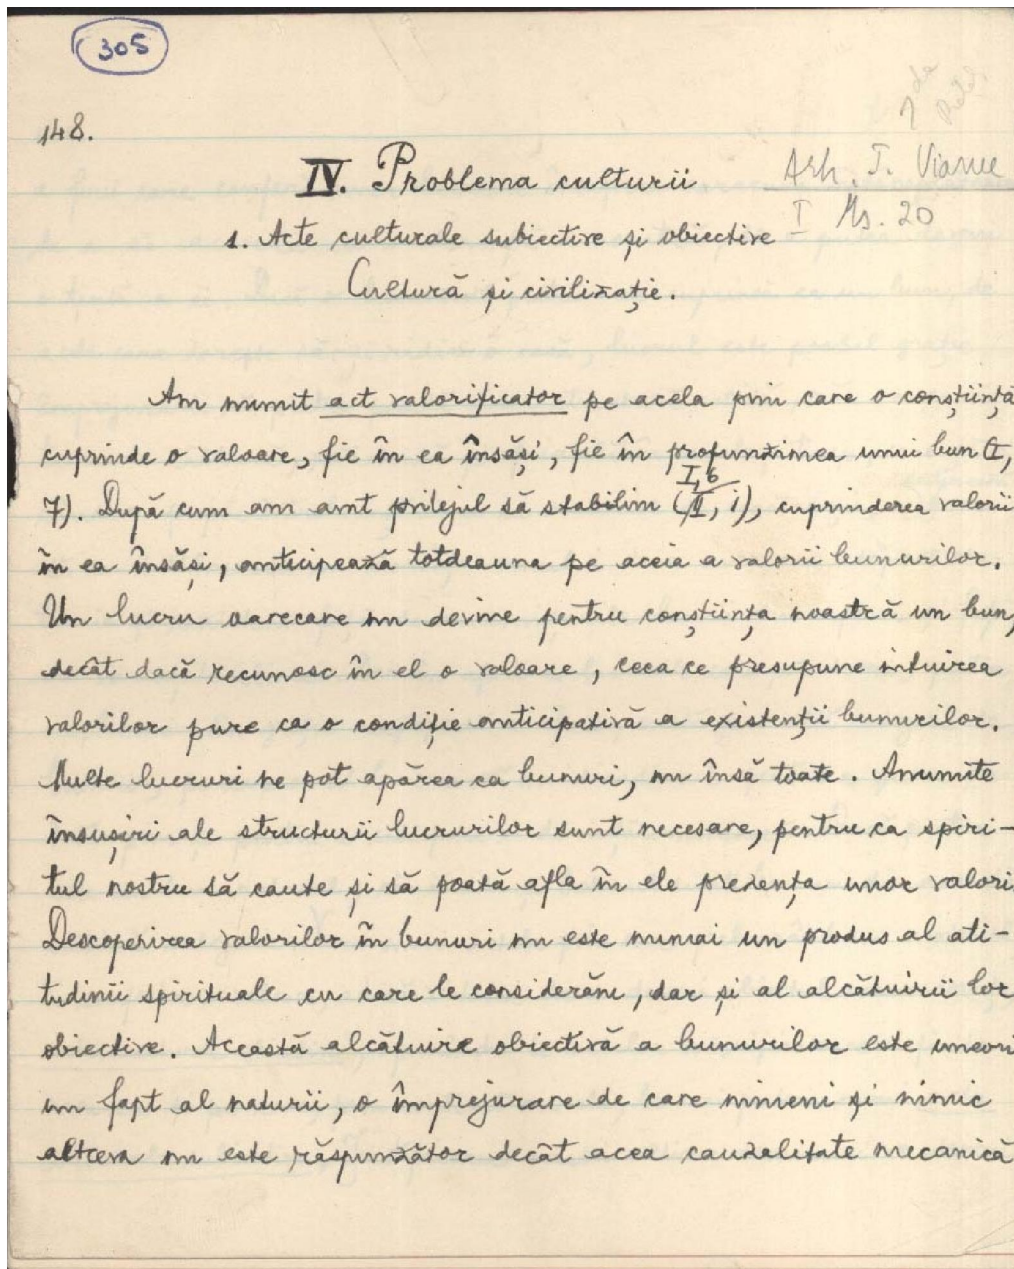 305
148.
Arh. T. Vianu
I Ms. 20
IV. Problema culturii
1. Acte culturale subiective și obiective
Cultură și civilizație.
Am numit act valorificator pe acela prin care o conștiință
cuprinde o valoare, fie în ea însăși, fie în profunzimea unui bun (I,
I, 6
7). După cum am avut prilejul să stabilim (II, 1), cuprinderea valorii
în ea însăși, anticipează totdeauna pe aceia a valorii bunurilor.
Un lucru oarecare nu devine pentru conștiința noastră un bun,
decât dacă recunosc în el o valoare, ceea ce presupune intuirea
valorilor pure ca o condiție anticipativă a existenții bunurilor.
Multe lucruri ne pot apărea ca bunuri, nu însă toate. Anumite
însușiri ale structurii lucrurilor sunt necesare, pentru ca spiri-
tul nostru să caute și să poată afla în ele prezența unor valori
Descoperirea valorilor în bunuri nu este numai un produs al ati-
tudinii spirituale cu care le considerăm, dar și al alcătuirii lor
obiective. Această alcătuire obiectivă a bunurilor este uneori
un fapt al naturii, o împrejurare de care nimeni și nimic
altceva nu este răspunzător decât acea cauzalitate mecanică